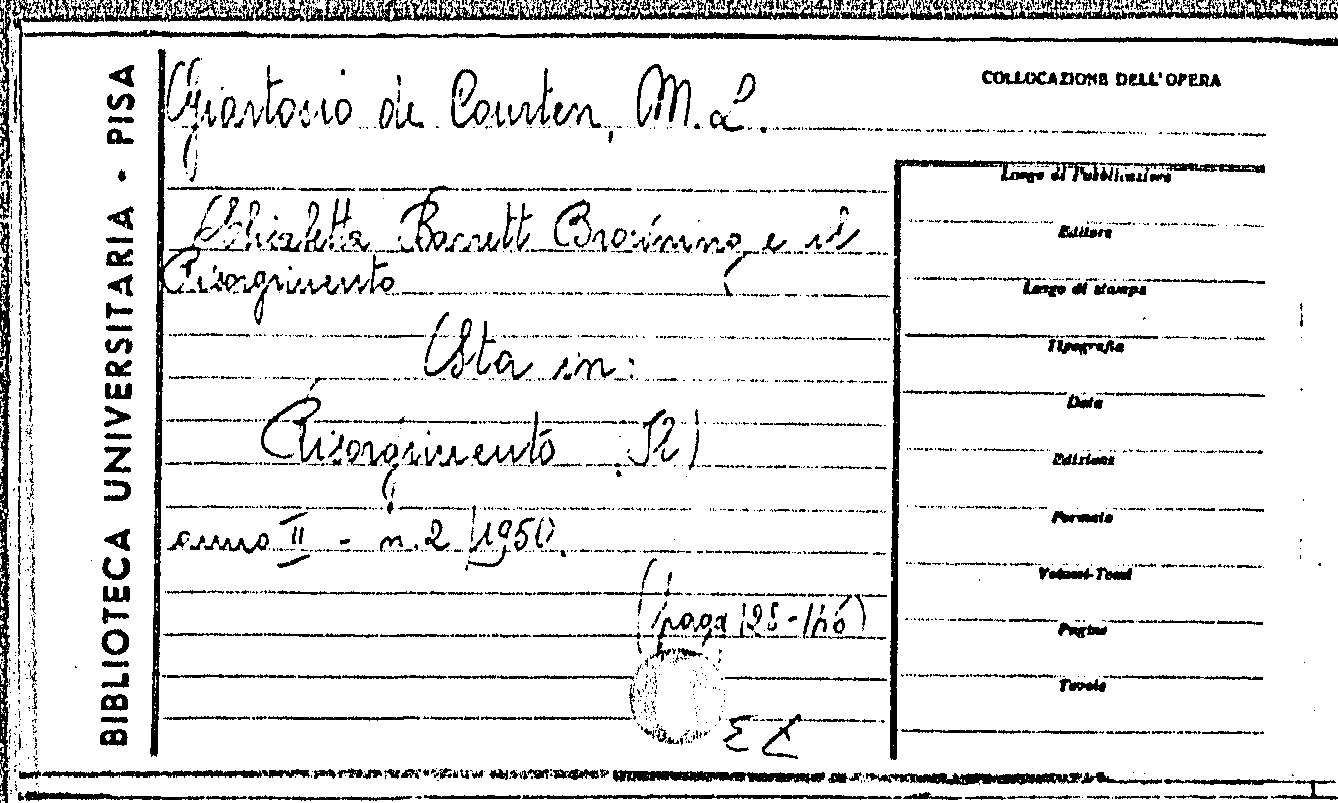 BIBLIOTECA UNIVERSITARIA - PISA
Giartosio de Courten, M.L.
COLLOCAZIONE DELL'OPERA
Elisabetta Barrett Browning e il
Risorgimento
Sta in:
Risorgimento
anno II - n. 2 1950.
Luogo di Pubblicazione
Editore
Luogo di stampa
Tipografia
Data
Edizione
Formato
Volumi-Tomi
Pagine
Tavole